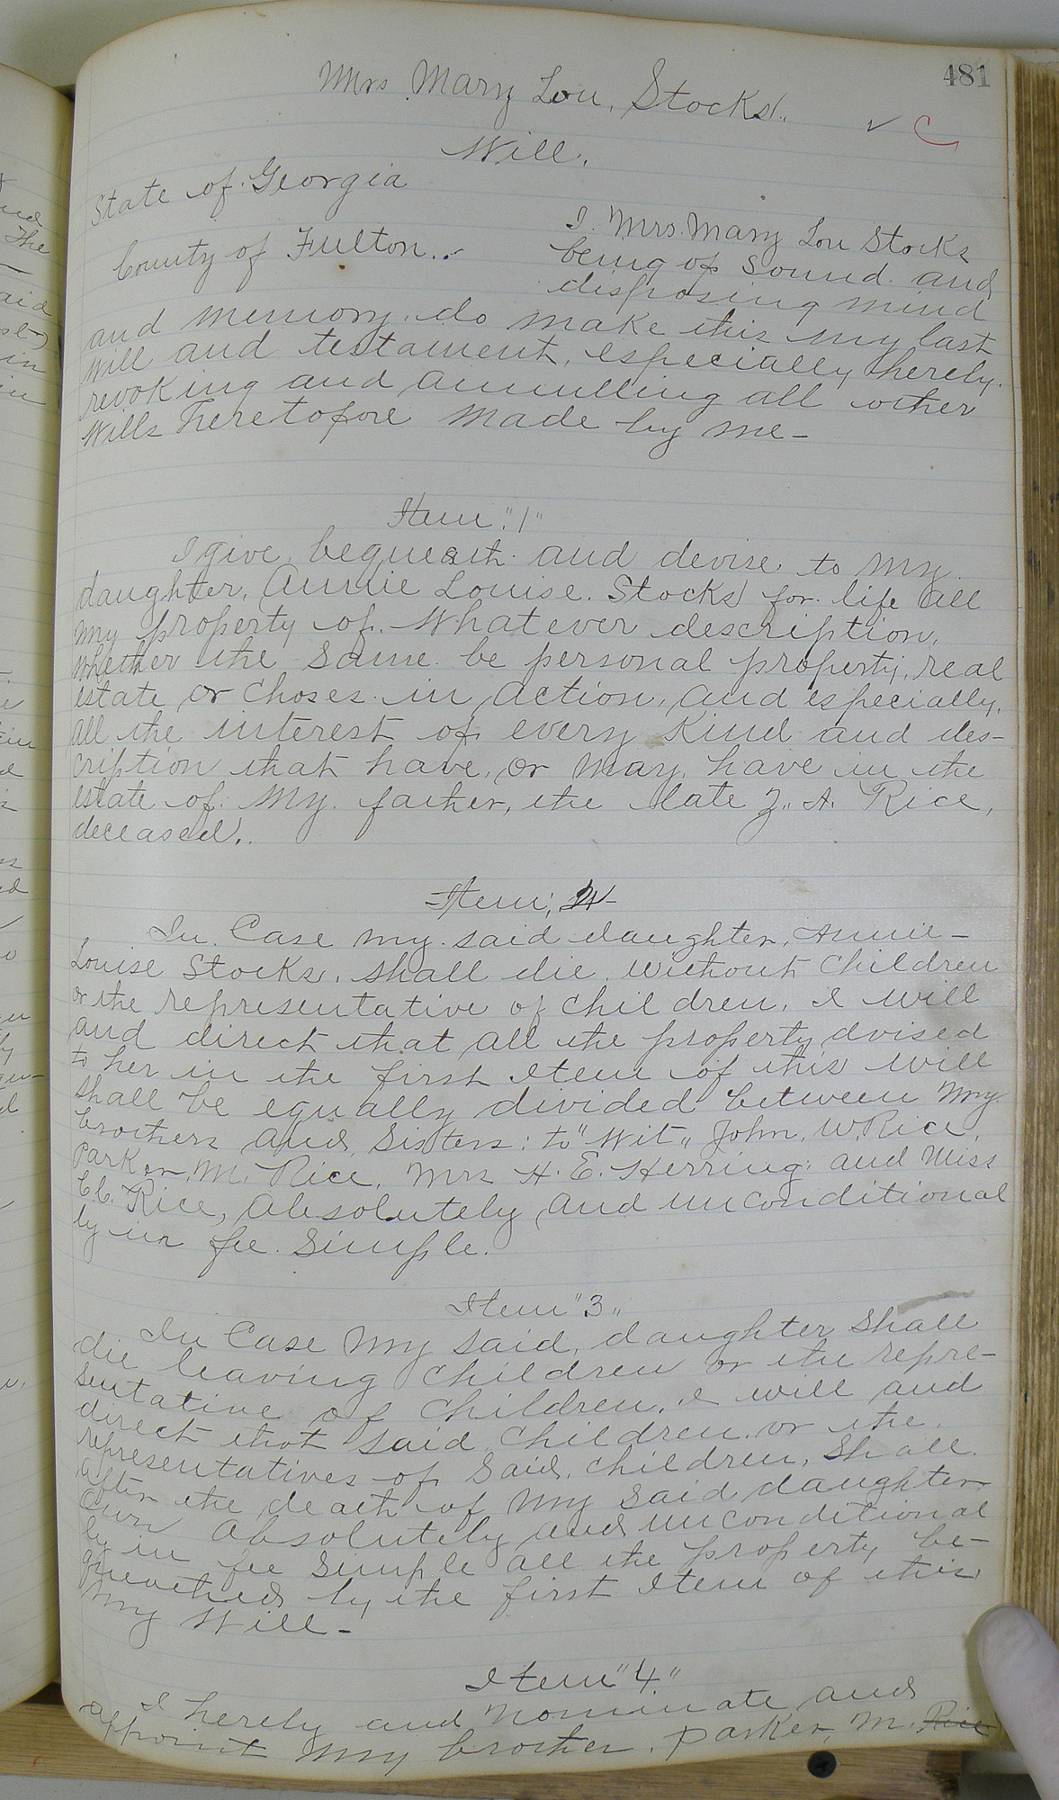 481
Mrs Mary Lou, Stocks.
Will.
State of Georgia
County of Fulton..
I. Mrs. Mary Lou Stocks
being of sound and
disposing mind
and memory, do make this my last
will and testament, especially hereby
revoking and annulling all other
wills heretofore made by me-
Item "1"
I give bequeath and devise to my
daughter, Annie Louise Stocks for life all
my property of whatever description,
whether the same be personal property, real
estate or choses in action, and especially,
all the interest of every kind and des-
cription that have, or may have in the
estate of my father, the late Z. A. Rice,
deceased.
Item,
In Case my said daughter, Annie-
Louise Stocks, shall die without children
or the representative of children, I will
and direct that all the property dvised
to her in the first Item of this will
shall be equally divided between my
brothers and Sisters: to "Wit" John, W. Rice,
Parker, M. Rice, Mrs H. E. Herring: and Miss
Rice, absolutely and unconditional
ly in fee simple.
Item "3"
In Case my said, daughter shall
die leaving children or the repre-
sentative of children, I will and
direct that said children or the
representatives of said, children, shall
after the death of my said daughter
own absolutely and unconditional
ly in fee simple all the property be-
queathed by the first Item of this
my will-
Item "4"
I hereby and nominate and
appoint my brother, Parker, M. Rice